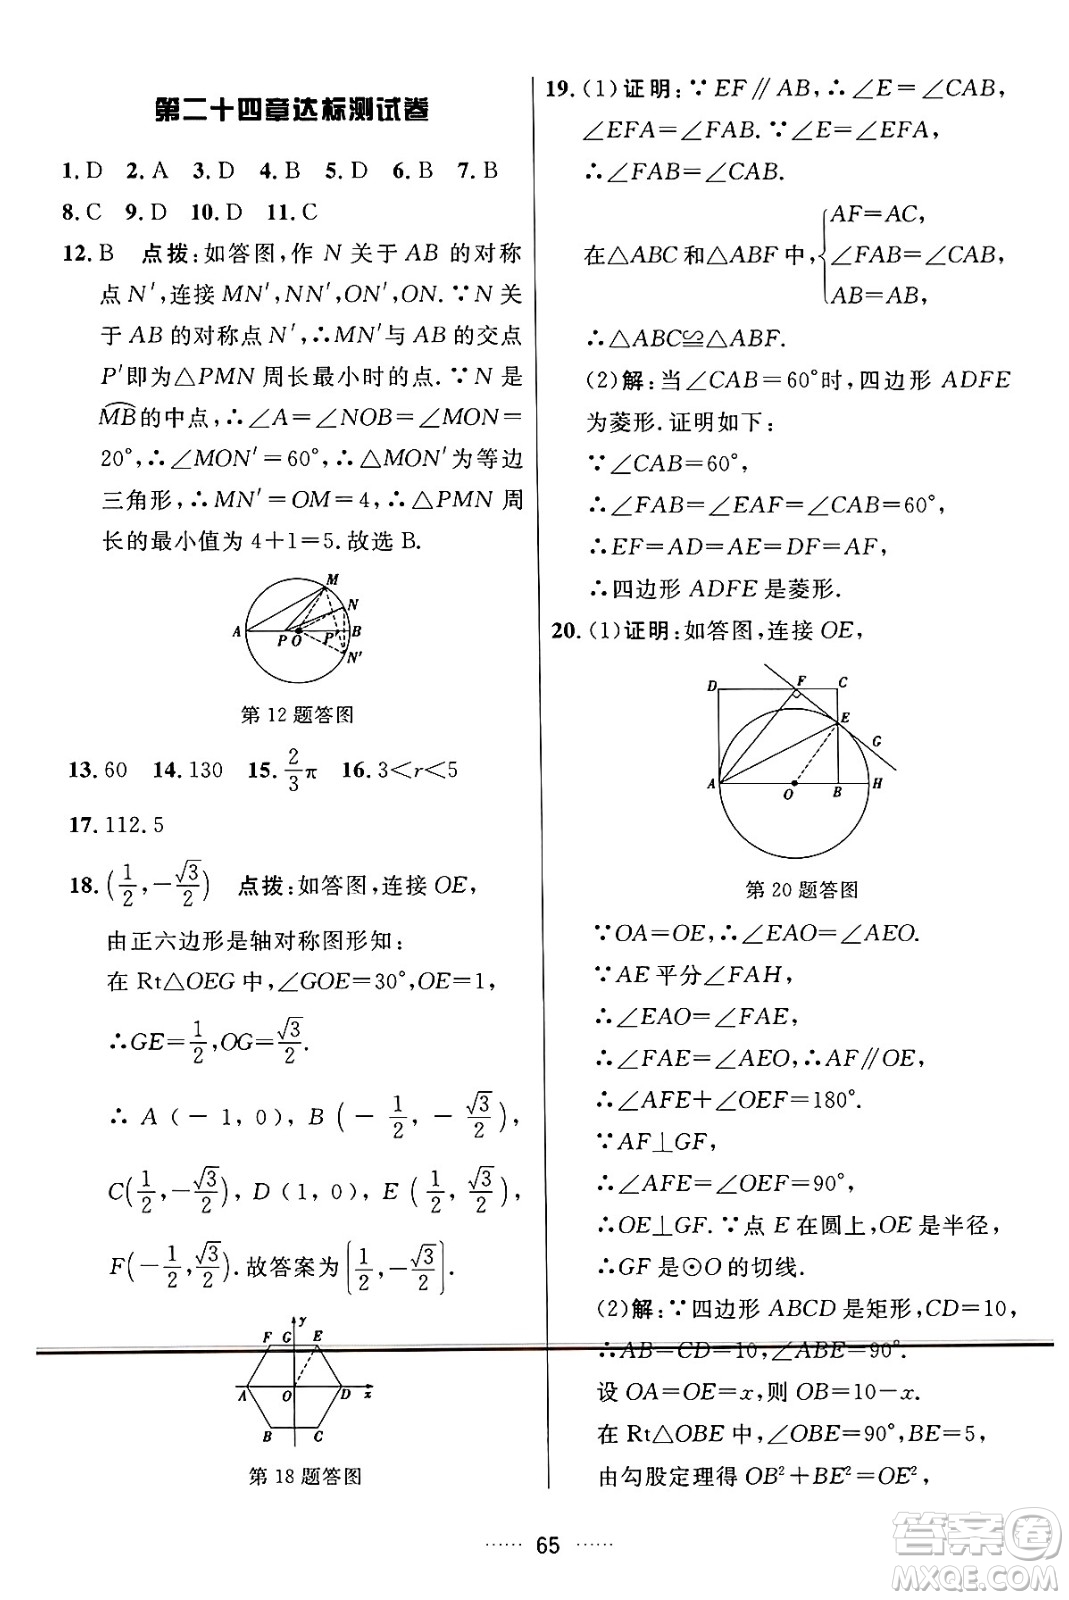 第二十四章达标测试卷
1. D 2. A 3. D 4. B 5. D 6. B 7. B
8. C 9. D 10. D 11. C
12. B 点拨:如答图,作 N 关于 AB 的对称
点 N′,连接 MN′,NN′,ON′,ON.∵N 关
于 AB 的对称点 N′,∴MN′与 AB 的交点
P′即为△PMN 周长最小时的点.∵N 是
M͡B的中点,∴∠A=∠NOB=∠MON=
20°,∴∠MON′=60°,∴△MON′为等边
三角形,∴MN′=OM=4,∴△PMN 周
长的最小值为 4+1=5.故选 B.
M
N
A P O P′ B
N′
第 12 题答图
13. 60 14. 130 15. 2/3 π 16. 3<r<5
17. 112.5
18. (1/2,-√3/2) 点拨:如答图,连接 OE,
由正六边形是轴对称图形知:
在 Rt△OEG 中,∠GOE=30°,OE=1,
∴GE=1/2,OG=√3/2.
∴A(-1,0),B(-1/2,-√3/2),
C(1/2,-√3/2),D(1,0),E(1/2,√3/2),
F(-1/2,√3/2).故答案为(1/2,-√3/2).
y
F G E
A O D x
B C
第 18 题答图
19. (1)证明:∵EF∥AB,∴∠E=∠CAB,
∠EFA=∠FAB.∵∠E=∠EFA,
∴∠FAB=∠CAB.
在△ABC 和△ABF 中,{AF=AC,
∠FAB=∠CAB,
AB=AB,
∴△ABC≌△ABF.
(2)解:当∠CAB=60°时,四边形 ADFE
为菱形.证明如下:
∵∠CAB=60°,
∴∠FAB=∠EAF=∠CAB=60°,
∴EF=AD=AE=DF=AF,
∴四边形 ADFE 是菱形.
20. (1)证明:如答图,连接 OE,
D F C
E
G
A O B H
第 20 题答图
∵OA=OE,∴∠EAO=∠AEO.
∵AE 平分∠FAH,
∴∠EAO=∠FAE,
∴∠FAE=∠AEO,∴AF∥OE,
∴∠AFE+∠OEF=180°.
∵AF⊥GF,
∴∠AFE=∠OEF=90°,
∴OE⊥GF.∵点 E 在圆上,OE 是半径,
∴GF 是⊙O 的切线.
(2)解:∵四边形 ABCD 是矩形,CD=10,
∴AB=CD=10,∠ABE=90°.
设 OA=OE=x,则 OB=10-x.
在 Rt△OBE 中,∠OBE=90°,BE=5,
由勾股定理得 OB²+BE²=OE²,
······ 65 ······
答案卷
MXQE.COM